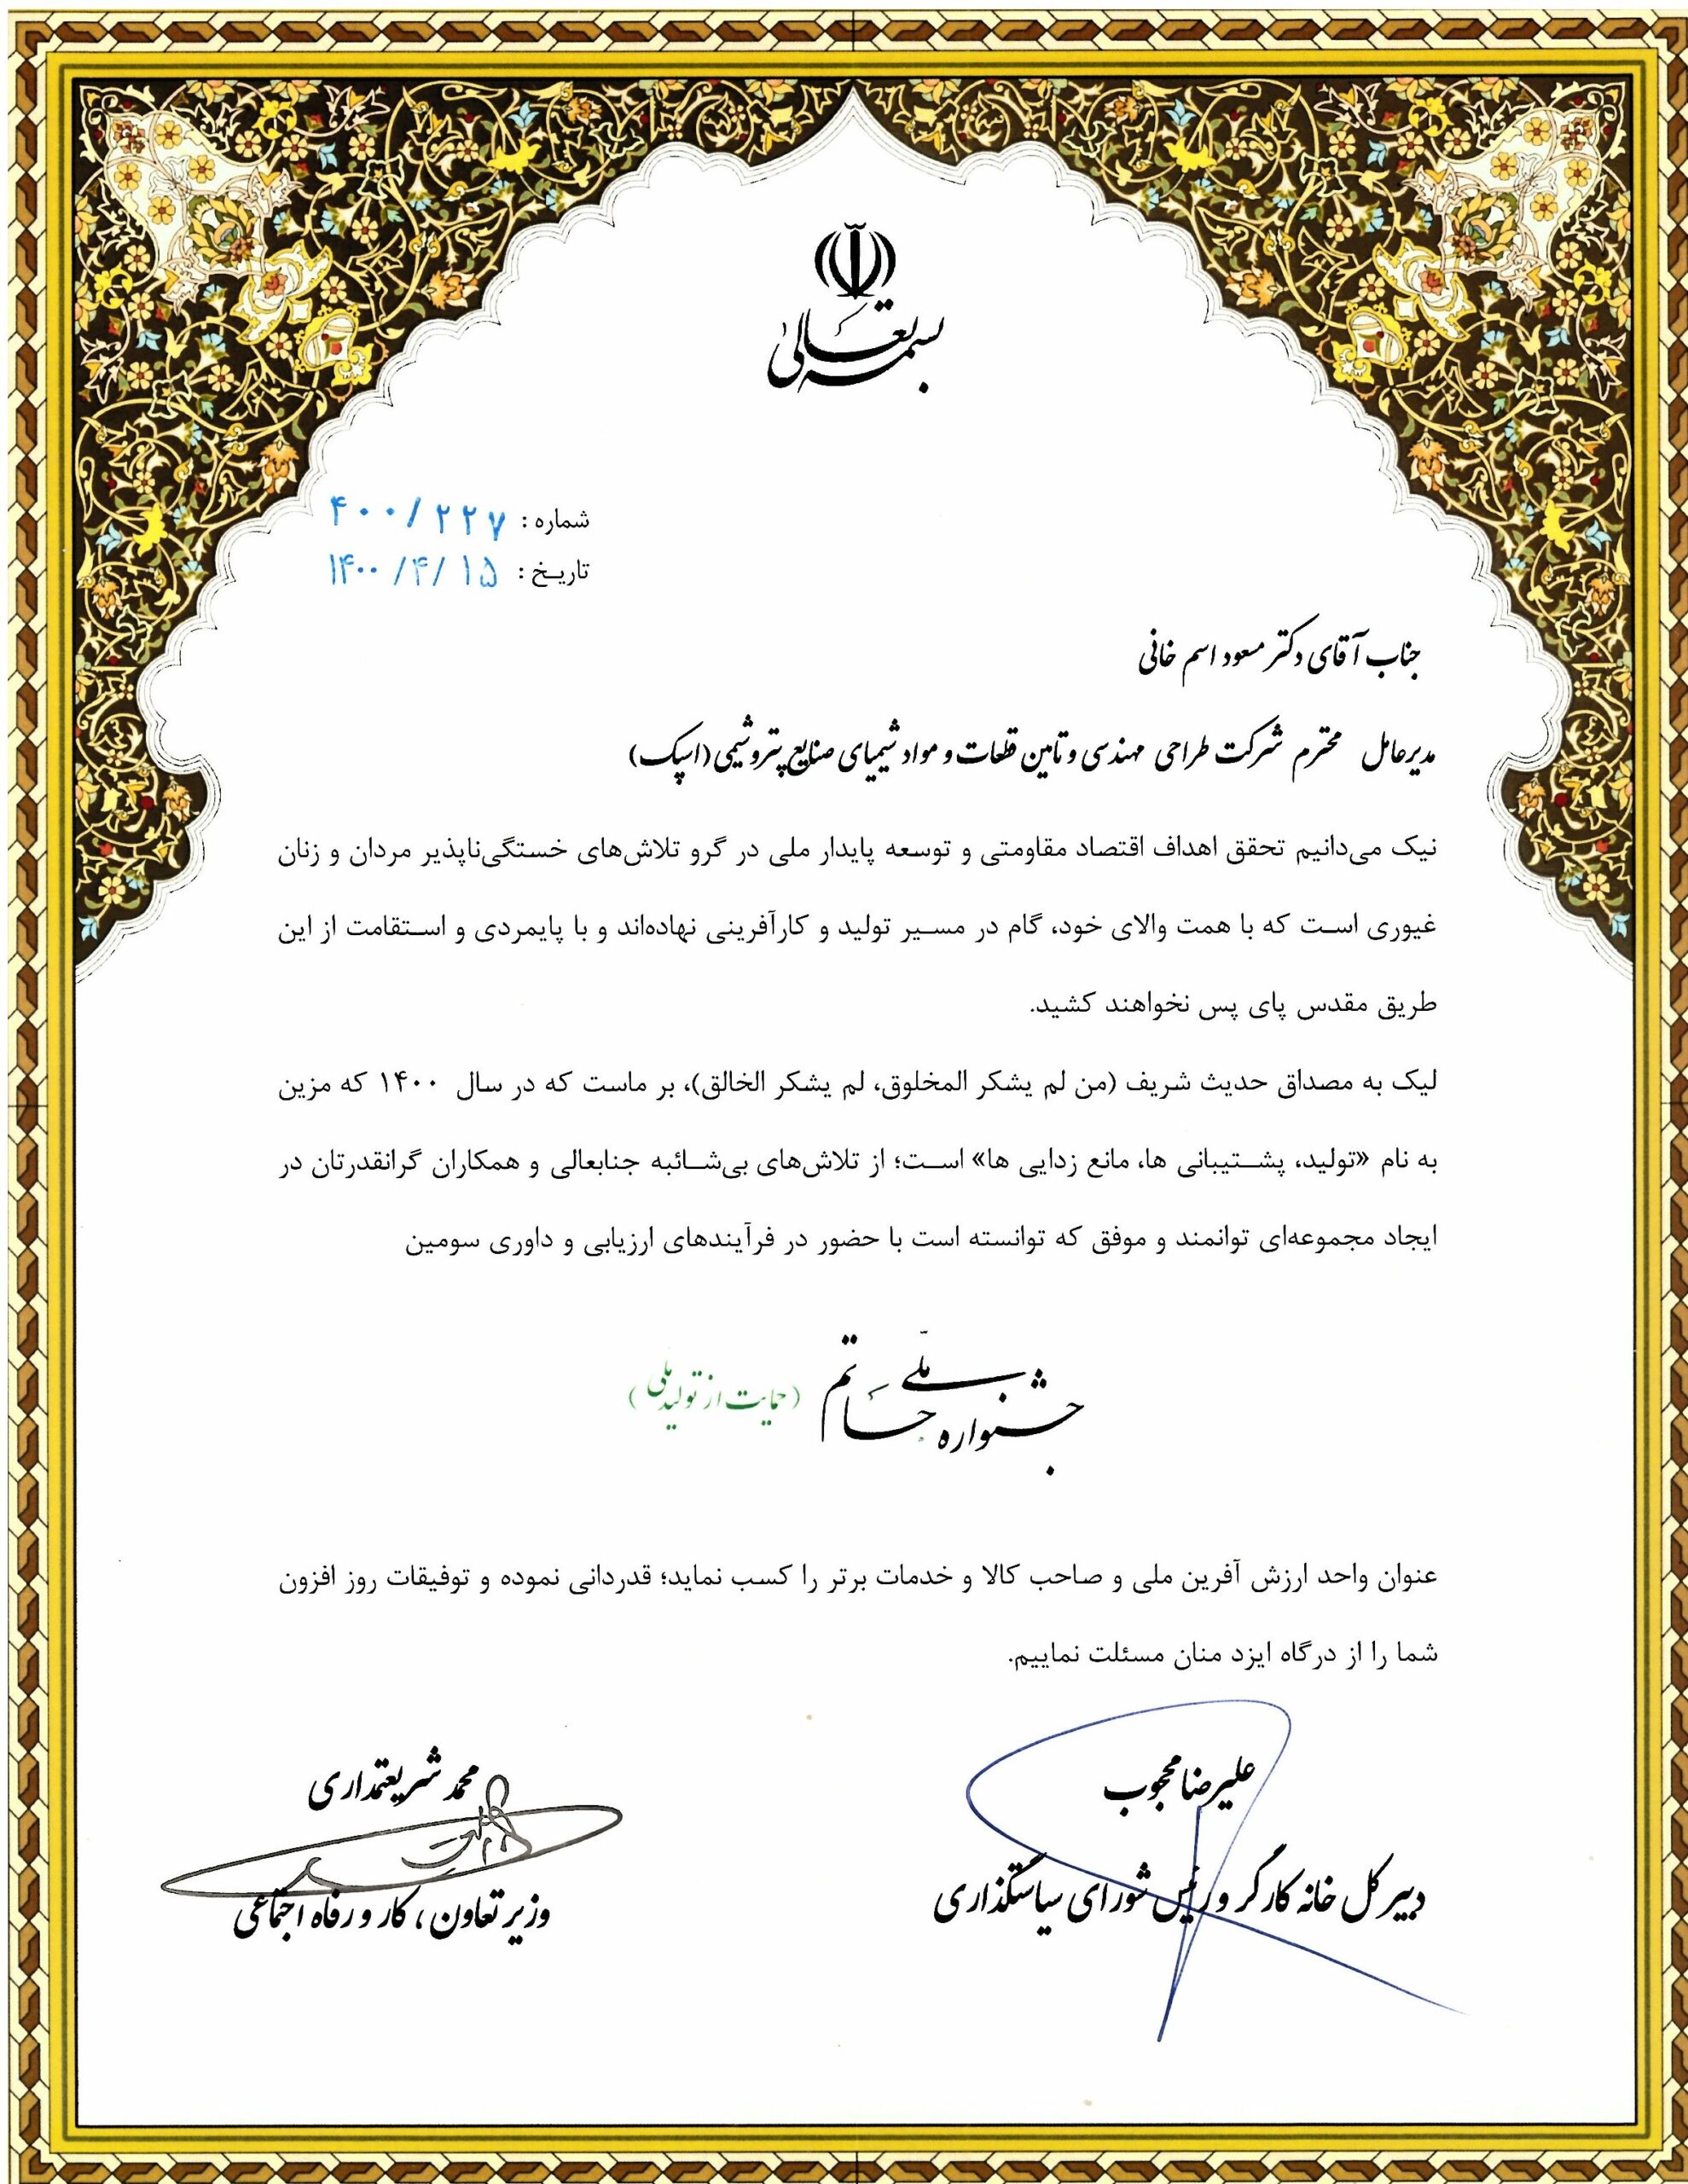 بسمه تعالی
شماره : ۴۰۰/۲۲۷
تاریـخ : ۱۴۰۰/۴/۱۵
جناب آقای دکتر مسعود اسم خانی
مدیرعامل محترم شرکت طراحی مهندسی و تامین قطعات و مواد شیمیای صنایع پتروشیمی (اسپک)
نیک می‌دانیم تحقق اهداف اقتصاد مقاومتی و توسعه پایدار ملی در گرو تلاش‌های خستگی‌ناپذیر مردان و زنان
غیوری اسـت که با همت والای خود، گام در مسـیر تولید و کارآفرینی نهاده‌اند و با پایمردی و اسـتقامت از این
طریق مقدس پای پس نخواهند کشید.
لیک به مصداق حدیث شریف (من لم یشکر المخلوق، لم یشکر الخالق)، بر ماست که در سال ۱۴۰۰ که مزین
به نام «تولید، پشـتیبانی ها، مانع زدایی ها» اسـت؛ از تلاش‌های بی‌شـائبه جنابعالی و همکاران گرانقدرتان در
ایجاد مجموعه‌ای توانمند و موفق که توانسته است با حضور در فرآیندهای ارزیابی و داوری سومین
جشنواره ملی حاتم (حمایت از تولید ملی)
عنوان واحد ارزش آفرین ملی و صاحب کالا و خدمات برتر را کسب نماید؛ قدردانی نموده و توفیقات روز افزون
شما را از درگاه ایزد منان مسئلت نماییم.
علیرضا محجوب
دبیر کل خانه کارگر و رئیس شورای سیاستگذاری
محمد شریعتمداری
وزیر تعاون، کار و رفاه اجتماعی